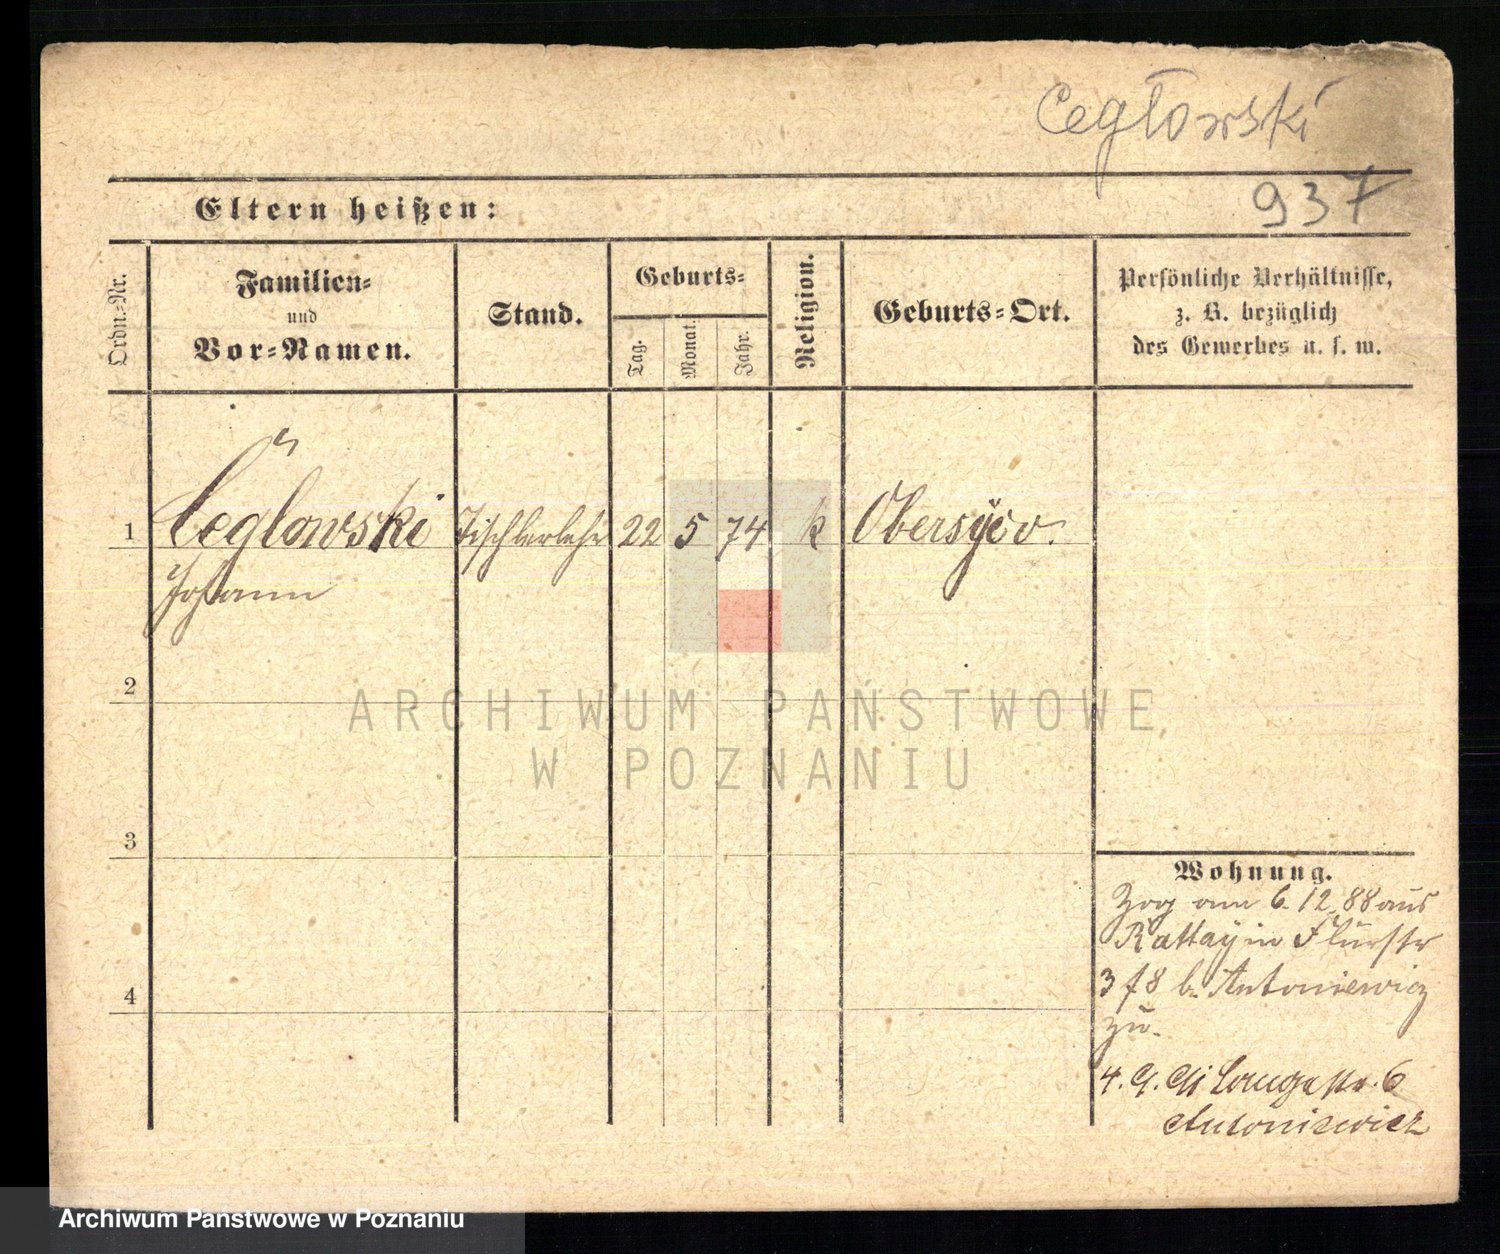 Cegłowski
937
Eltern heißen:
Ordn.-Nr.
Familien-
und
Vor-Namen.
Stand.
Geburts-
Tag.
Monat.
Jahr.
Religion.
Geburts-Ort.
Persönliche Verhältnisse,
z. B. bezüglich
des Gewerbes u. s. w.
1 Ceglowski Tischlerlehr 22 5 74 k
Johann
2
ARCHIWUM PAŃSTWOWE
W POZNANIU
3
Wohnung.
Zog am 6.12.88 aus
Rattay in Flurstr
3 f8 b. Antoniewicz
zu.
4. 9. Langestr. 6
Antoniewicz
4
Archiwum Państwowe w Poznaniu